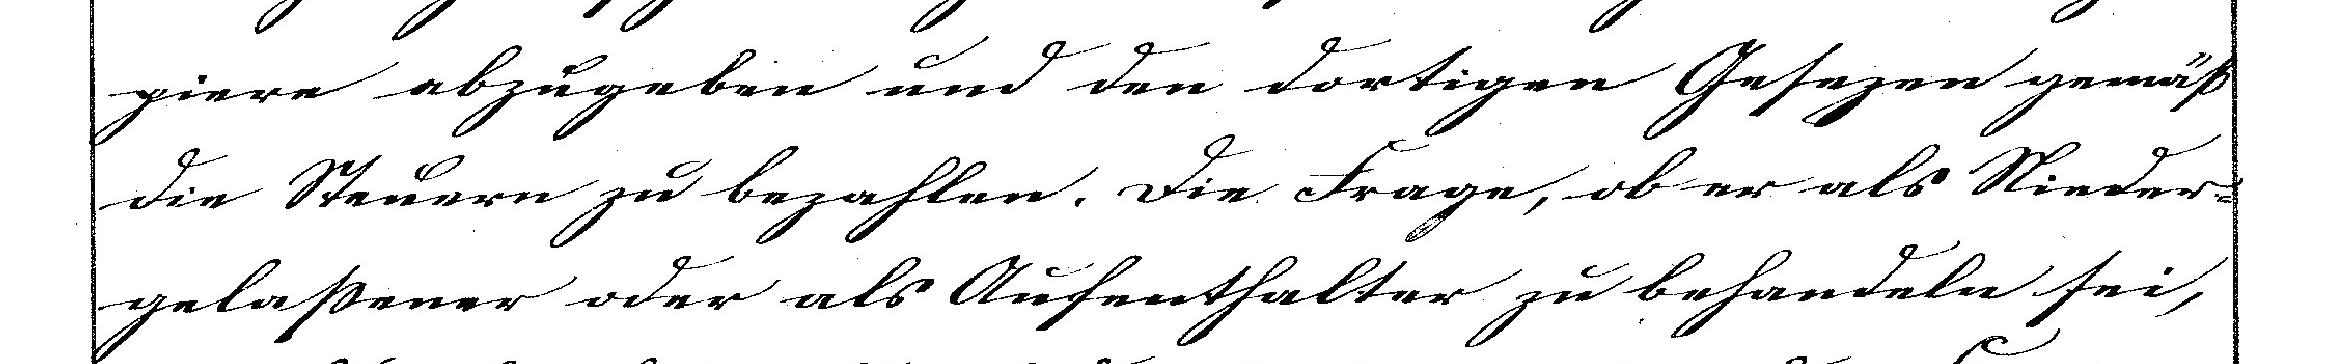 piere abzugeben und den dortigen Gesezen gemäß
die Steuern zu bezahlen. Die Frage, ob er als Nieder-
gelaßener oder als Aufenthalter zu behandeln sei,